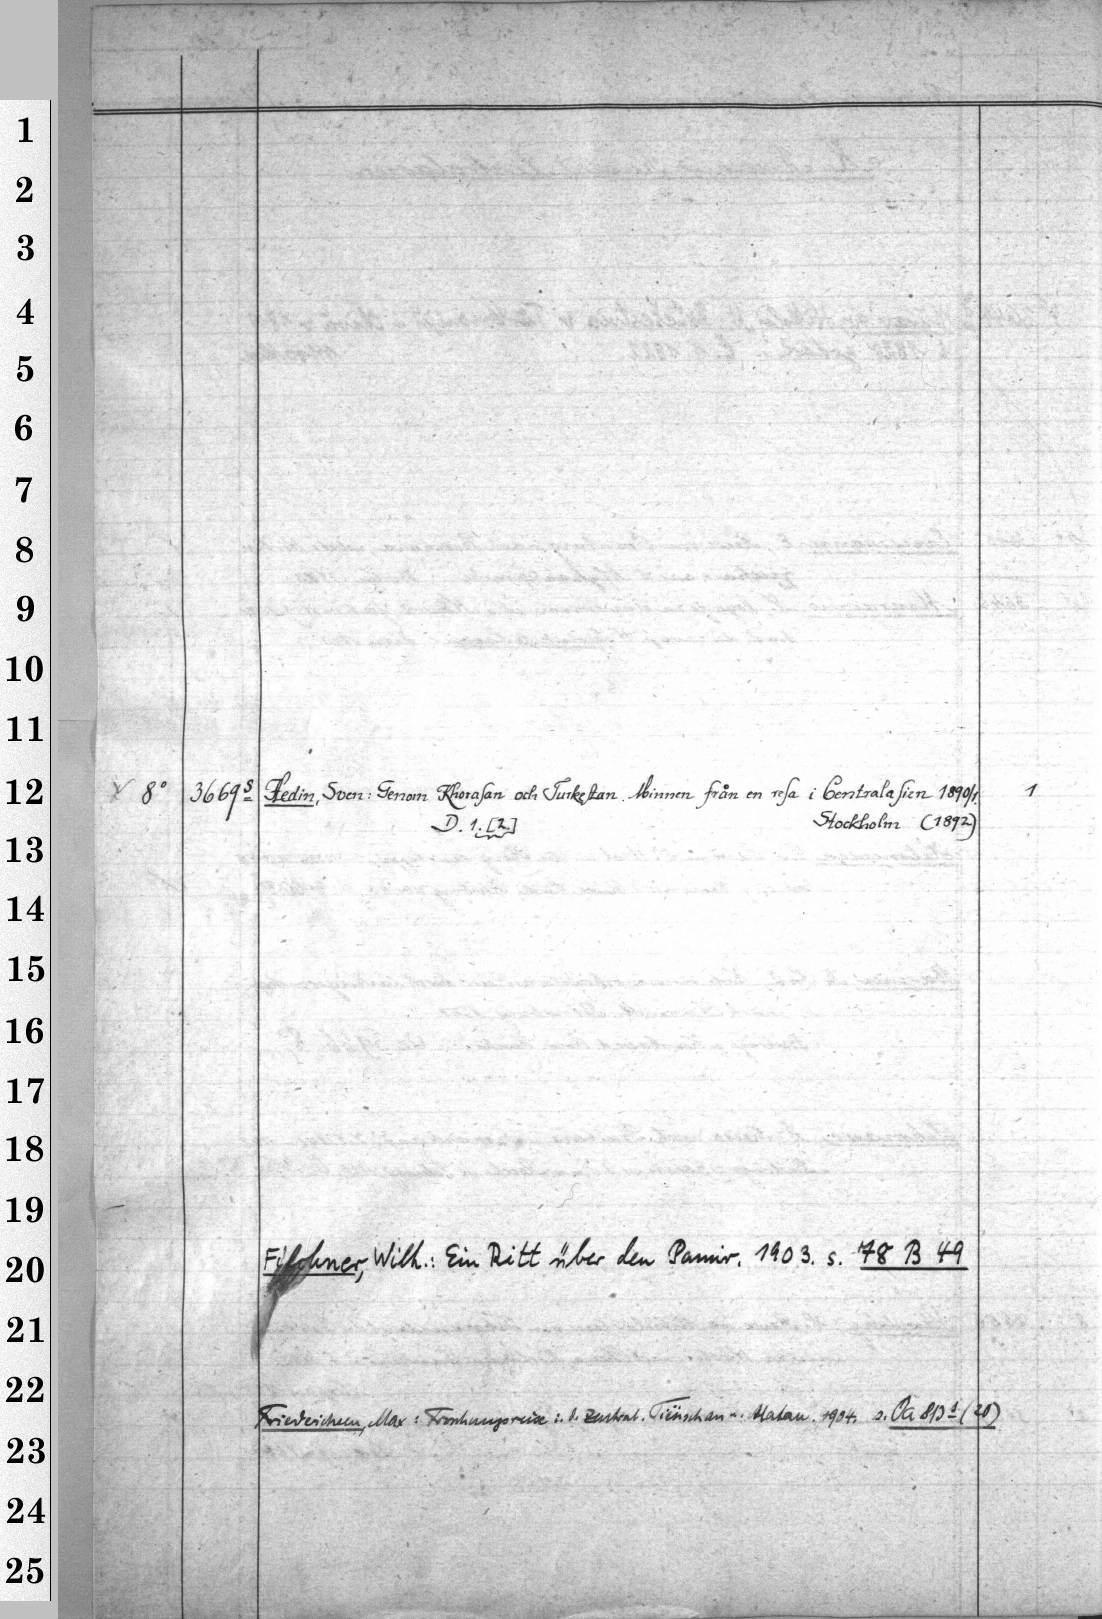 1
2
3
4
5
6
7
8
9
10
11
12
13
14
15
16
17
18
19
20
21
22
23
24
25
8° 3669 s Hedin, Sven: Genom Khorasan och Turkestan. Minnen från en resa i Centralasien 1890/1. 1
D. 1. [2.] Stockholm (1892)
Filchner, Wilh.: Ein Ritt über den Pamir. 1903. s. 78 B 49
Friederichsen, Max: Forschungsreise i. d. Zentral. Tiënschan u. 1904. s.